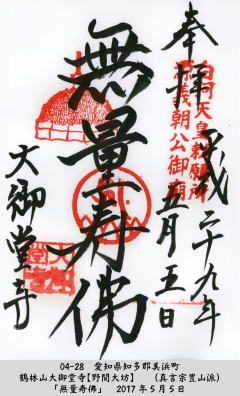 奉拝
白河天皇勅願所
源義朝公御廟
平成二十九年
五月五日
無量寿佛
大御堂寺
04-28　愛知県知多郡美浜町
鶴林山大御堂寺【野間大坊】　（真言宗豊山派）
「無量寿佛」　2017年5月5日